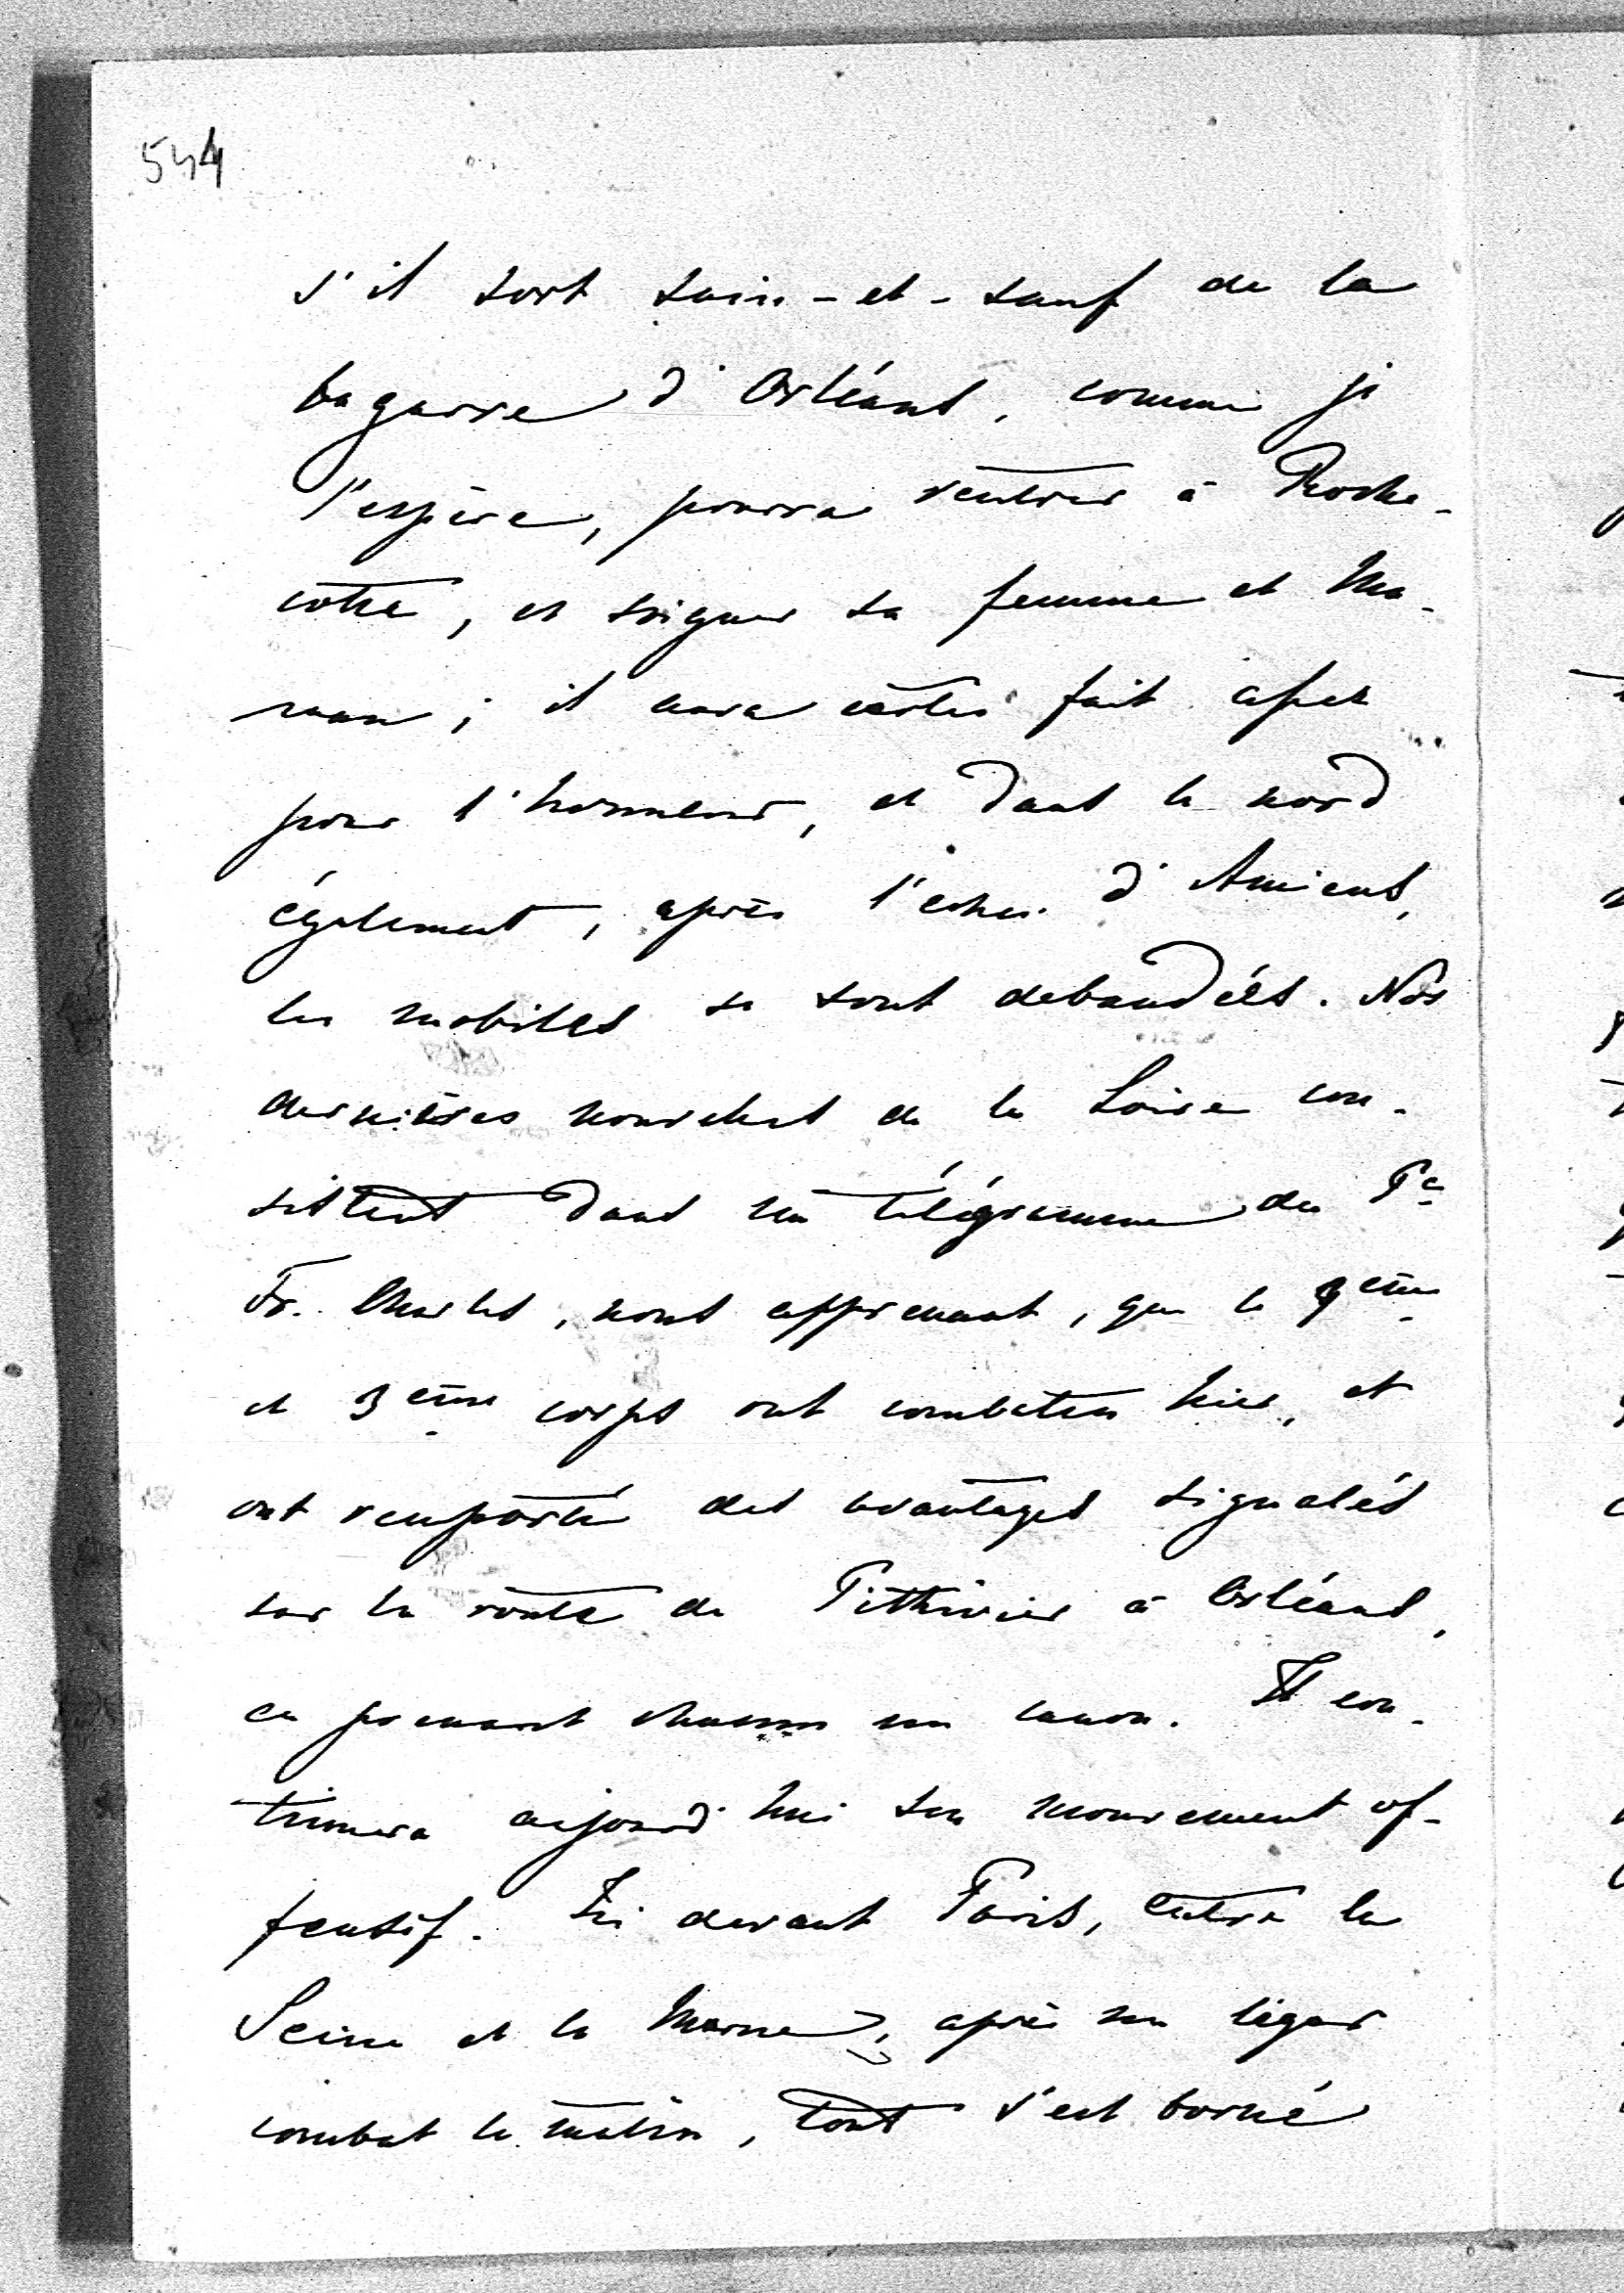 544
s'il sort sain-et-sauf de la
bagarre d'Orléans, comme je
l'espère, pourra rentrer à Roche-
cotte, et soigner sa femme et Ma-
man ; il aura certes fait assez
pour l'honneur, et dans le nord
également, après l'échec d'Amiens,
les mobiles se sont debandées. Nos
dernières nouvelles de la Loire con-
sistent dans un télégramme du Pce
Fr. Charles, nous apprenant, que le 9ème
et 3ème corps ont combattu hier, et
ont remporté des avantages signalés
sur la route de Pithivier à Orléans,
en prenant chacun un canon. Il con-
tinuera aujourd'hui son mouvement of-
fensif. Ici devant Paris, entre la
Seine et la Marne, après un léger
combat le matin, tout s'est borné